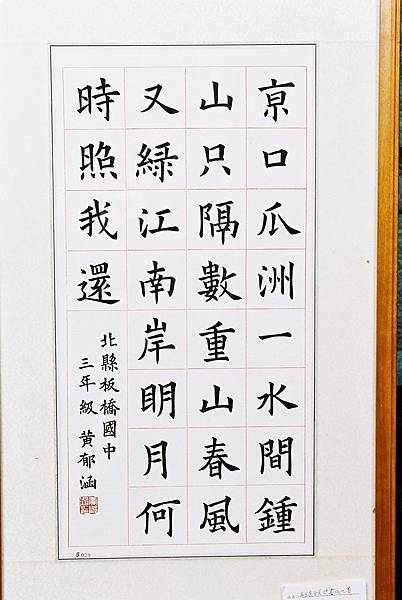 京口瓜洲一水間鍾
山只隔數重山春風
又綠江南岸明月何
時照我還
北縣板橋國中
三年級 黃郁涵